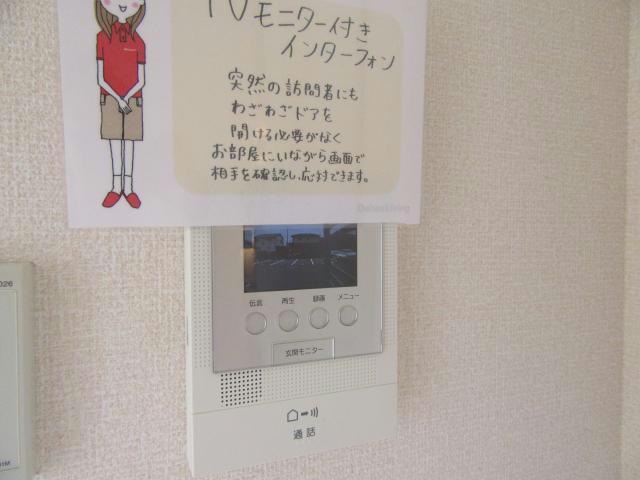 TVモニター付き
インターフォン
突然の訪問者にも
わざわざドアを
開ける必要がなく
お部屋にいながら画面で
相手を確認し、応対できます。
伝言 再生 録画 メニュー
玄関モニター
通話
026